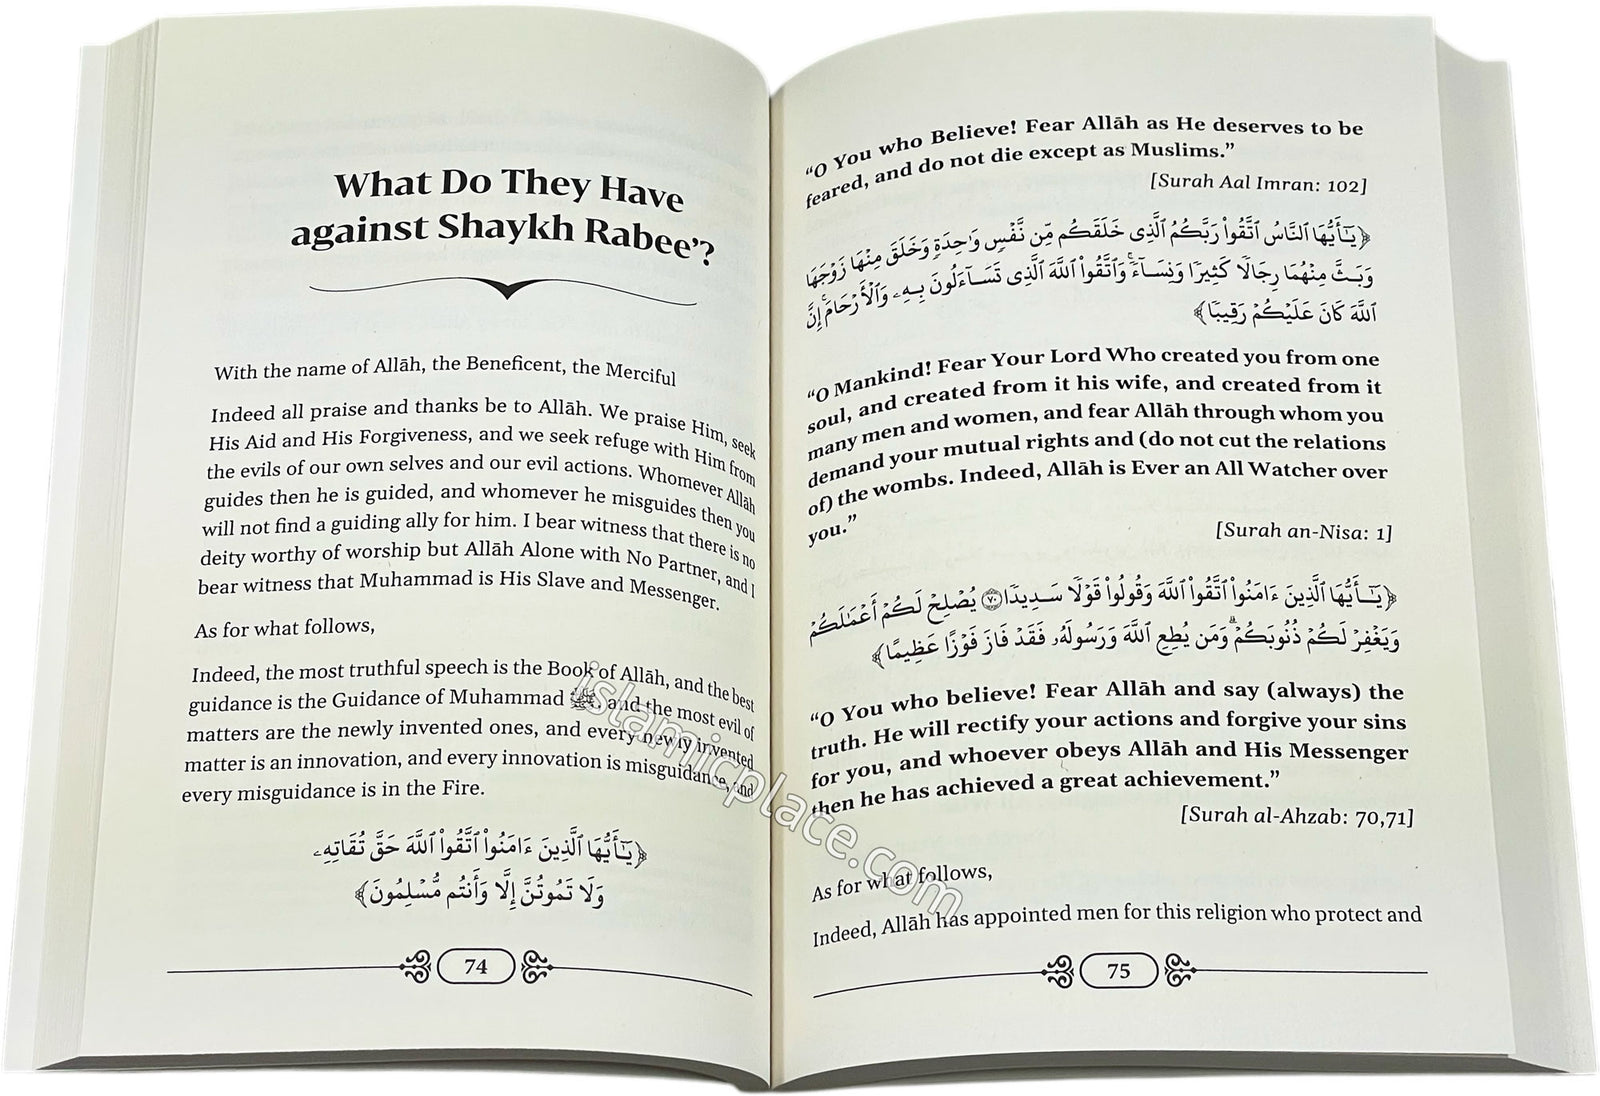 What Do They Have
against Shaykh Rabee'?
With the name of Allāh, the Beneficent, the Merciful
Indeed all praise and thanks be to Allāh. We praise Him, seek
His Aid and His Forgiveness, and we seek refuge with Him from
the evils of our own selves and our evil actions. Whomever Allāh
guides then he is guided, and whomever he misguides then you
will not find a guiding ally for him. I bear witness that there is no
deity worthy of worship but Allāh Alone with No Partner, and I
bear witness that Muhammad is His Slave and Messenger.
As for what follows,
Indeed, the most truthful speech is the Book of Allāh, and the best
guidance is the Guidance of Muhammad ﷺ, and the most evil of
matters are the newly invented ones, and every newly invented
matter is an innovation, and every innovation is misguidance, and
every misguidance is in the Fire.
﴿يَـٰٓأَيُّهَا ٱلَّذِينَ ءَامَنُوا۟ ٱتَّقُوا۟ ٱللَّهَ حَقَّ تُقَاتِهِۦ
وَلَا تَمُوتُنَّ إِلَّا وَأَنتُم مُّسْلِمُونَ﴾
74
“O You who Believe! Fear Allāh as He deserves to be
feared, and do not die except as Muslims.”
[Surah Aal Imran: 102]
﴿يَـٰٓأَيُّهَا ٱلنَّاسُ ٱتَّقُوا۟ رَبَّكُمُ ٱلَّذِى خَلَقَكُم مِّن نَّفْسٍ وَٰحِدَةٍ وَخَلَقَ مِنْهَا زَوْجَهَا
وَبَثَّ مِنْهُمَا رِجَالًا كَثِيرًا وَنِسَآءً ۚ وَٱتَّقُوا۟ ٱللَّهَ ٱلَّذِى تَسَآءَلُونَ بِهِۦ وَٱلْأَرْحَامَ ۚ إِنَّ
ٱللَّهَ كَانَ عَلَيْكُمْ رَقِيبًا﴾
“O Mankind! Fear Your Lord Who created you from one
soul, and created from it his wife, and created from it
many men and women, and fear Allāh through whom you
demand your mutual rights and (do not cut the relations
of) the wombs. Indeed, Allāh is Ever an All Watcher over
you.”
[Surah an-Nisa: 1]
﴿يَـٰٓأَيُّهَا ٱلَّذِينَ ءَامَنُوا۟ ٱتَّقُوا۟ ٱللَّهَ وَقُولُوا۟ قَوْلًا سَدِيدًا ۝٧٠ يُصْلِحْ لَكُمْ أَعْمَـٰلَكُمْ
وَيَغْفِرْ لَكُمْ ذُنُوبَكُمْ ۗ وَمَن يُطِعِ ٱللَّهَ وَرَسُولَهُۥ فَقَدْ فَازَ فَوْزًا عَظِيمًا﴾
“O You who believe! Fear Allāh and say (always) the
truth. He will rectify your actions and forgive your sins
for you, and whoever obeys Allāh and His Messenger
then he has achieved a great achievement.”
[Surah al-Ahzab: 70,71]
As for what follows,
Indeed, Allāh has appointed men for this religion who protect and
75
islamicplace.com